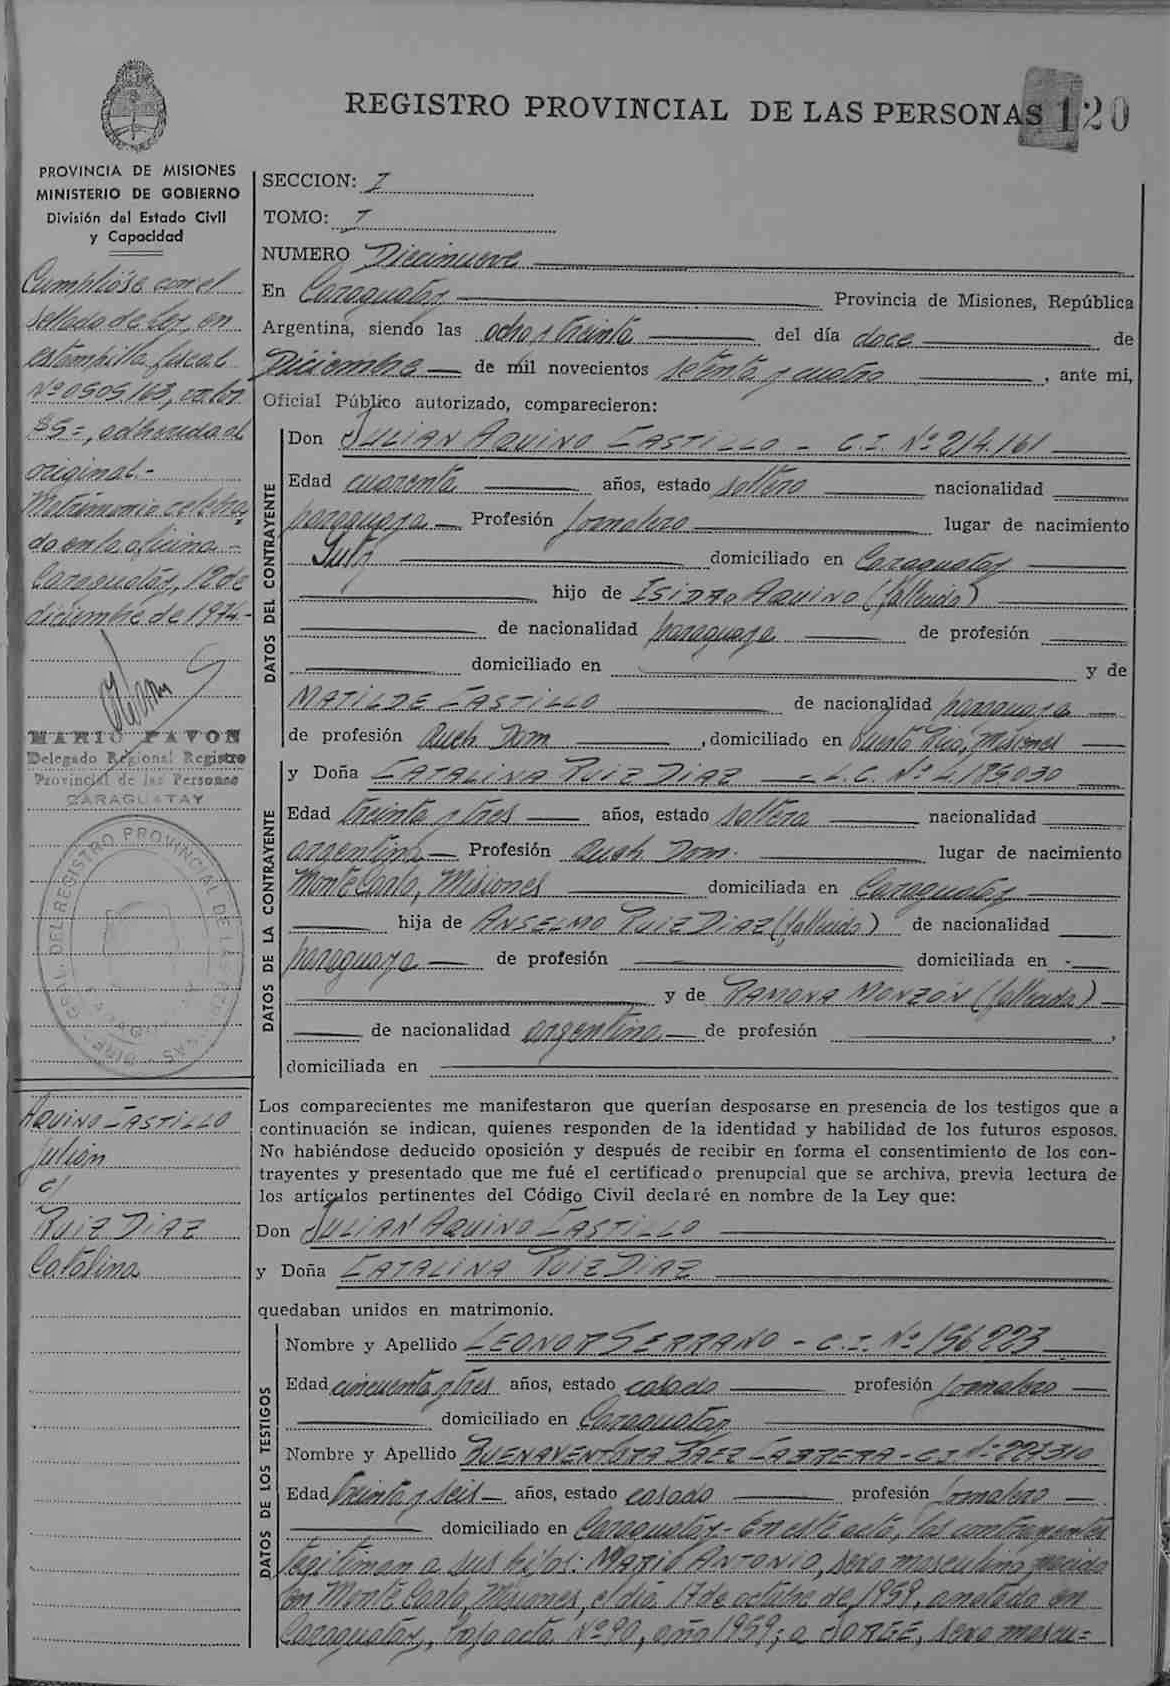 REGISTRO PROVINCIAL DE LAS PERSONAS 120
PROVINCIA DE MISIONES
MINISTERIO DE GOBIERNO
División del Estado Civil
y Capacidad
Cumplióse con el
sellado de ley, en
estampilla fiscal
Nº 0505.163, valor
$5=, adherida al
original.-
Matrimonio celebra
do en la oficina.-
Caraguatay, 12 de
diciembre de 1974-
MARIO PAVON
Delegado Regional Registro
Provincial de las Personas
CARAGUATAY
AQUINO CASTILLO
Julián
c/
RUIZ DIAZ
Catalina
SECCION: I
TOMO: I
NUMERO Diecinueve
En Caraguatay Provincia de Misiones, República
Argentina, siendo las ocho y treinta del día doce de
Diciembre de mil novecientos setenta y cuatro, ante mi,
Oficial Público autorizado, comparecieron:
DATOS DEL CONTRAYENTE
Don JULIAN AQUINO CASTILLO - C.I. Nº 214.161
Edad cuarenta años, estado soltero nacionalidad
paraguaya Profesión jornalero lugar de nacimiento
domiciliado en Caraguatay
hijo de ISIDRO AQUINO (fallecido)
de nacionalidad paraguaya de profesión
domiciliado en y de
MATILDE CASTILLO de nacionalidad paraguaya
de profesión Queh Dom, domiciliado en Puerto Rico, Misiones
DATOS DE LA CONTRAYENTE
y Doña CATALINA RUIZ DIAZ - L.C. Nº 4.185.030
Edad treinta y tres años, estado soltera nacionalidad
argentina Profesión Queh Dom. lugar de nacimiento
Monte Carlo, Misiones domiciliada en Caraguatay
hija de ANSELMO RUIZ DIAZ (fallecido) de nacionalidad
paraguaya de profesión domiciliada en
y de RAMONA MONZÓN (fallecida)
de nacionalidad argentina de profesión ,
domiciliada en
Los comparecientes me manifestaron que querían desposarse en presencia de los testigos que a
continuación se indican, quienes responden de la identidad y habilidad de los futuros esposos.
No habiéndose deducido oposición y después de recibir en forma el consentimiento de los con-
trayentes y presentado que me fué el certificado prenupcial que se archiva, previa lectura de
los artículos pertinentes del Código Civil declaré en nombre de la Ley que:
Don JULIAN AQUINO CASTILLO
y Doña CATALINA RUIZ DIAZ
quedaban unidos en matrimonio.
DATOS DE LOS TESTIGOS
Nombre y Apellido LEONOR SERRANO - C.I. Nº 156223
Edad cincuenta y tres años, estado casado profesión jornalero
domiciliado en Caraguatay
Nombre y Apellido BUENAVENTURA BAEZ CABRERA - C.I. Nº 227310
Edad treinta y seis años, estado casado profesión jornalero
domiciliado en Caraguatay - En este acto, los contrayentes
legitiman a sus hijos: MARIO ANTONIO, sexo masculino, nacido
en Monte Carlo, Misiones, el día 17 de octubre de 1959, anotado en
Caraguatay, bajo acta Nº 90, año 1959; a JORGE, sexo mascu=